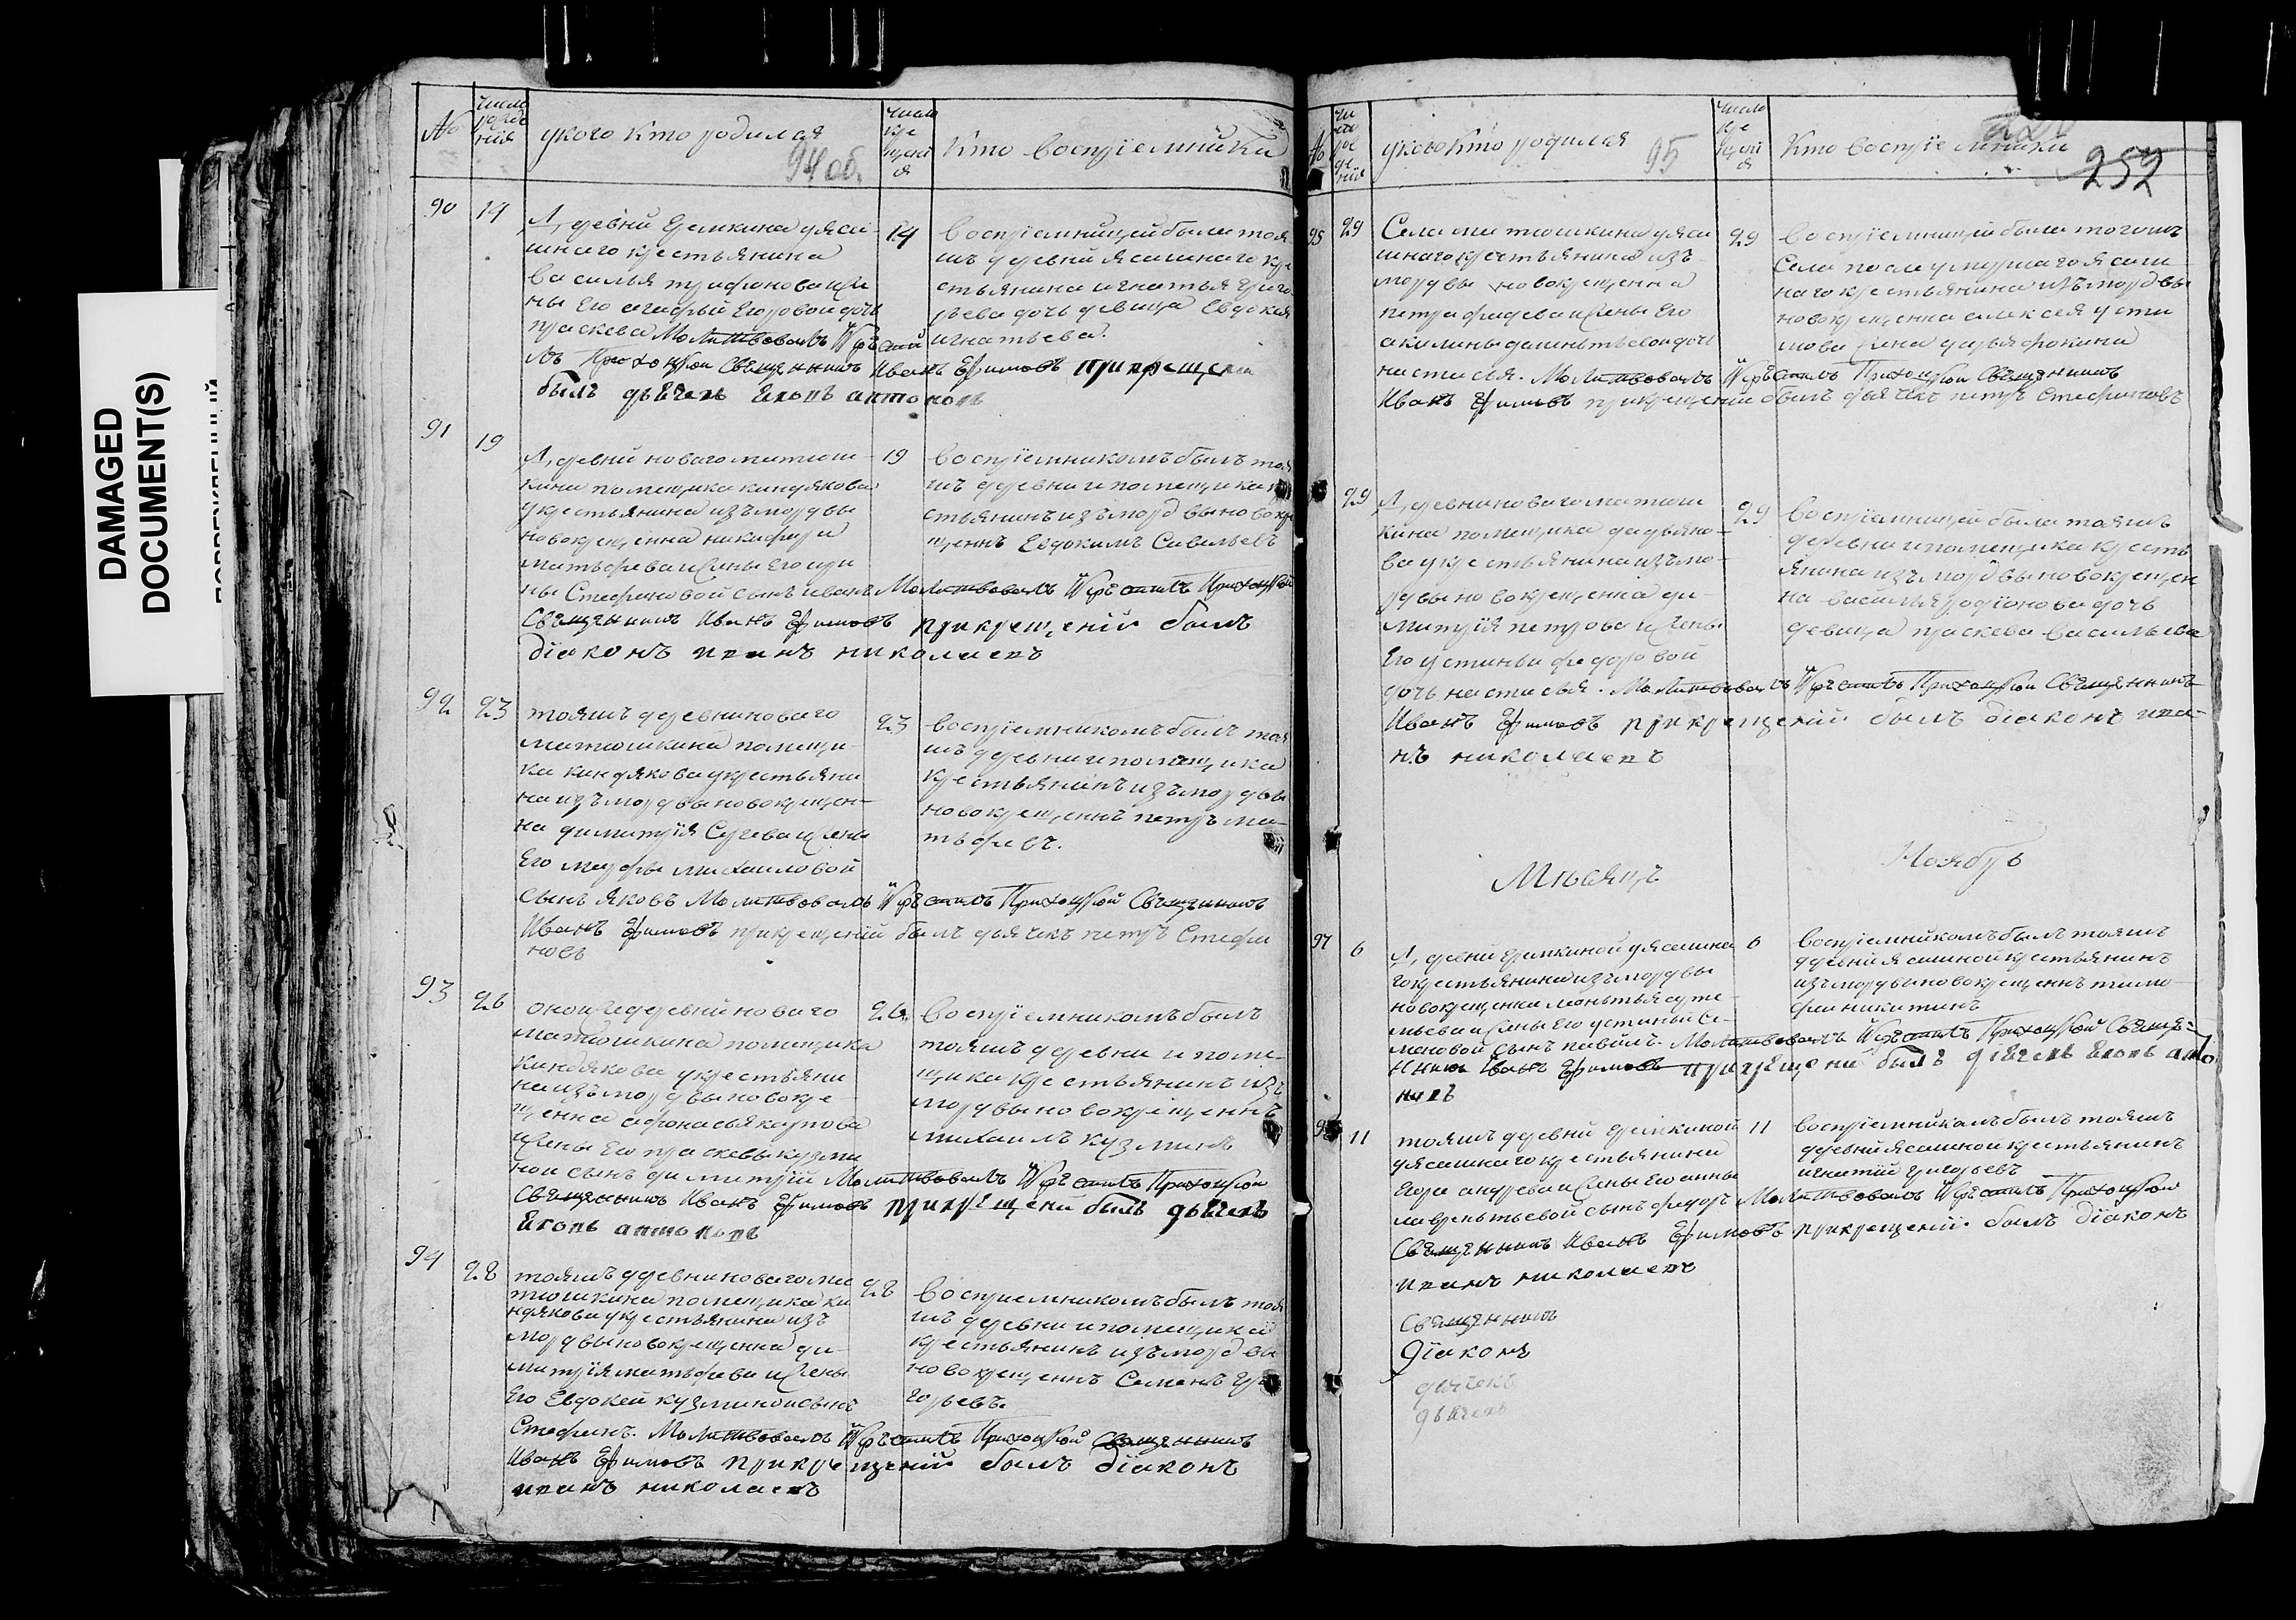 DAMAGED
DOCUMENT(S)
№
число рожде нія
у кого кто родился
94 об.
число кре щені я
кто воспріемники
90
14
Д, ревни Еремкина у яса
шнаго крестьянина
василья трифонова и же
ны его агафьи Егоровой дочь
праскева Молитвовалъ и крестил
лъ Приходской Священникъ Иванъ Ефимовъ при крещеніи
былъ дьячекъ Егоръ антоновъ
14
воспріемницей была тоя
жъ деревни ясашнаго кре
стьянина игнатья григо
рьева дочь девица Евдокия
игнатьева.
91
19
Д, ревни новаго матюш
кина помещика киндякова
у крестьянина изъ мордвы
новокрещенна никифора
матьфева и жены его ири
ны Стефановой сынъ иванъ Молитвовалъ и крестилъ Приходской
Священникъ Иванъ Ефимовъ при крещеніи былъ
діаконъ иванъ николаевъ
19
воспріемникомъ былъ тоя
жъ деревни и помещика кре
стьянинъ изъ мордвы новокре
щеннъ Евдокимъ Савельевъ
92
23
тояжъ деревни новаго
матюшкина помещи
ка киндякова у крестьяни
на изъ мордвы новокрещен
на димитрія Сергева и жены
Его марфы михаиловой
сынъ яковъ Молитвовалъ и крестилъ Приходской Священникъ
Иванъ Ефимовъ при крещеніи былъ дьячекъ петръ Стефа
новъ
23
воспріемникомъ былъ тоя
жъ деревни и помещика
крестьянинъ изъ мордвы
новокрещеннъ петръ ма
тьфевъ.
93
26
оной же деревни новаго
матюшкина помещика
киндякова у крестьяни
на изъ мордвы новокре
щенна афонасья карпова
и жены Его праскевы кузми
ной сынъ димитрій Молитвовалъ и крестилъ Приходской
Священникъ Иванъ Ефимовъ при крещени былъ дьячекъ
Егоръ антоновъ
26
воспріемникомъ былъ
тояжъ деревни и поме
щика крестьянинъ изъ
мордвы новокрещеннъ
михаилъ кузминъ
94
28
тояжъ деревни новаго ма
тюшкина помещика ки
ндякова у крестьянина изъ
мордвы новокрещенна ди
митрія матьфева и жены
Его Евдокеи кузминой сынъ
Стефанъ. Молитвовалъ и крестилъ Приходской Священникъ
Иванъ Ефимовъ при крещеніи былъ діаконъ
иванъ николаевъ
28
воспріемникомъ былъ тоя
жъ деревни и помещика
крестьянинъ изъ мордвы
новокрещеннъ Семенъ гри
горьевъ.
№
чи сло рож де нія
у кого кто родился
95
число кре щені я
кто воспріемники
252
95
29
Села матюшкина у яса
шнаго крестьянина изъ
мордвы новокрещенна
петра фадева и жены Его
акилины даментьевой дочь
настасья. Молитвовалъ и крестилъ Приходской Священникъ
Иванъ Ефимовъ при крещеніи былъ дьячекъ петръ Стефановъ
29
воспріемницей была тогожъ
Села после умершаго ясаш
наго крестьянина изъ мордвы
новокрещенна алексея усти
мова жена дарья фокина
29
Д, ревни новаго матюш
кина помещика дедьяко
ва у крестьянина изъ мо
рдвы новокрещенна ди
митрія петрова и жены
Его устиньи федоровой
дочь настасья. Молитвовалъ и крестилъ Приходской Священникъ
Иванъ Ефимовъ при крещеніи былъ діаконъ ива
нъ николаевъ
29
воспріемницей была тояжъ
деревни и помещика кресть
янина изъ мордвы новокрещен
на василья родіонова дочь
девица праскева васильева
Мѣсяцъ
Ноябрь
97
6
Д, ревни Еремкиной у ясашна
го крестьянина изъ мордвы
новокрещенна мантья арте
мьева и жены Его устиньи Се
меновой сынъ павилъ. Молитвовалъ и крестилъ Приходской Священ
никъ Иванъ Ефимовъ при крещени былъ дьячекъ Егоръ анто
новъ
6
воспріемникомъ былъ тояжъ
деревни ясашной крестьянинъ
изъ мордвы новокрещеннъ тимо
фей никитинъ
98
11
тояжъ деревни Еремкиной
у ясашнаго крестьянина
Егора андреева и жены Его анны
лаврентьевой сынъ федоръ Молитвовалъ и крестилъ Приходской
Священникъ Иванъ Ефимовъ при крещеніи былъ діаконъ
иванъ николаевъ
11
воспріемникомъ былъ тояжъ
деревни ясашной крестьянинъ
игнатій григорьевъ
Священникъ
Діаконъ
дьячекъ
дьячекъ